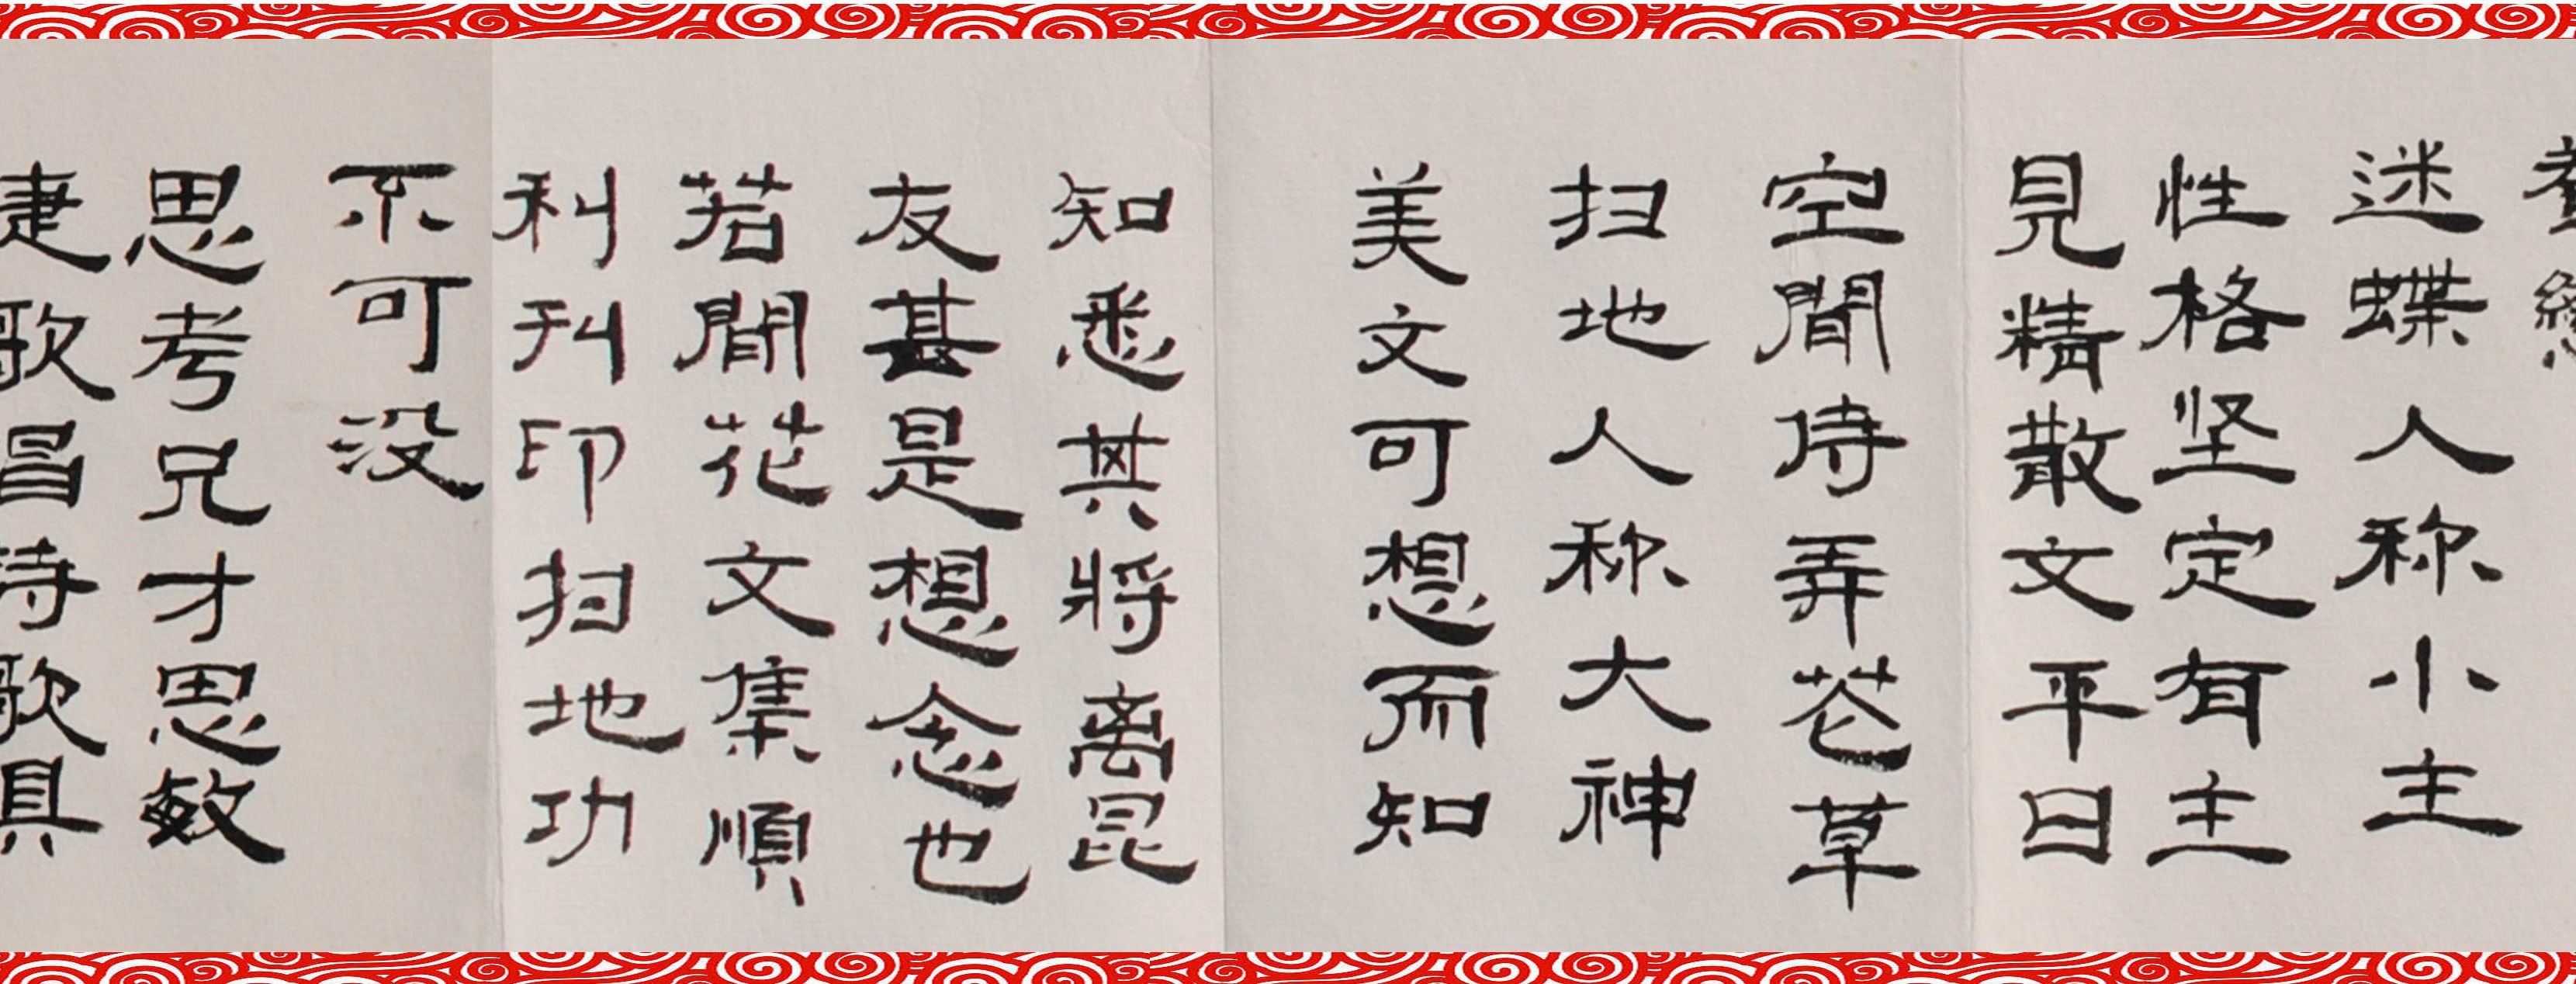 迷蝶人称小主
性格坚定有主
見精散文平日
空閒侍弄花草
扫地人称大神
美文可想而知
知悉其將离昆
友甚是想念也
若閒花文集順
利刊印扫地功
不可没
思考兄才思敏
捷歌昌诗歌具